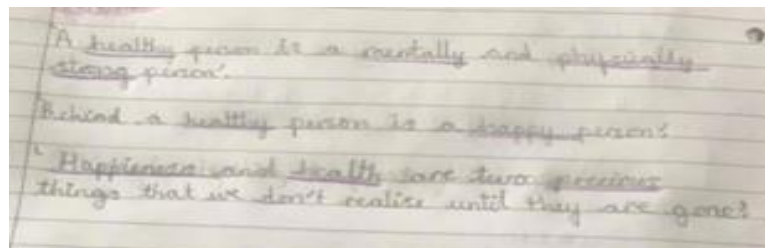 'A healthy person is a mentally and physically
strong person'.
'Behind a healthy person is a happy person'
'Happieness and health are two precious
things that we don't realise until they are gone'